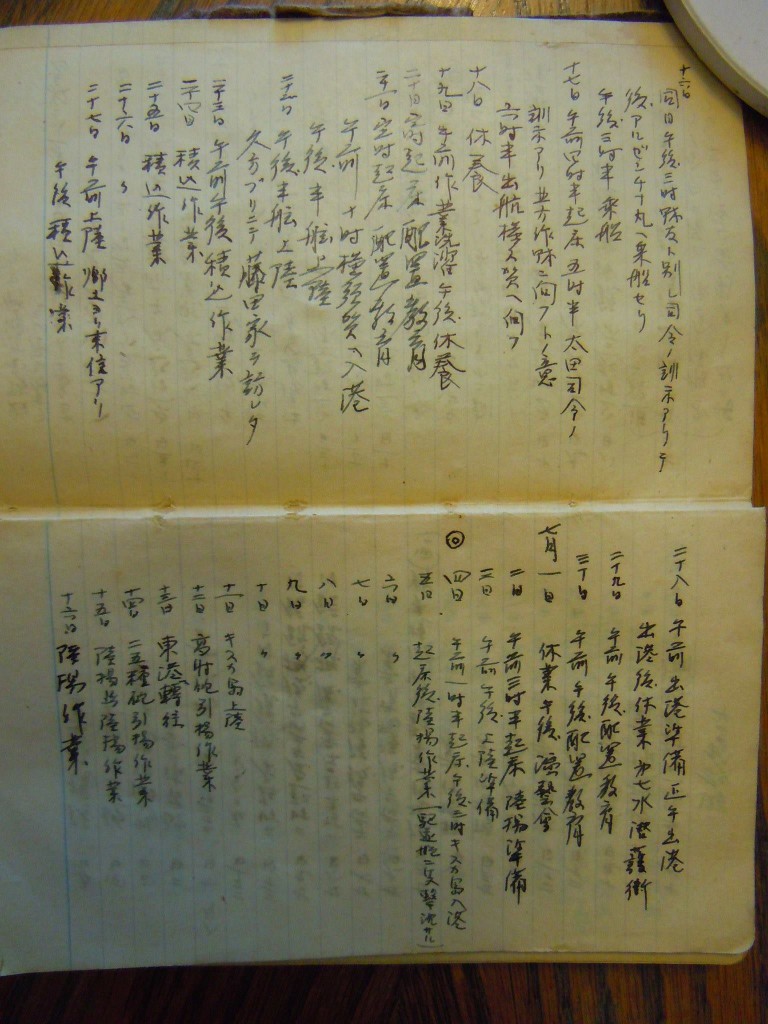 十六日 同日午後三時 ト別レ司令ノ訓示アリテ
後アルゼンチナ丸ヘ乗船セリ
午後三時半乗船
十七日 午前四時半起床五時半太田司令ノ
訓示アリ 作 ニ向フトノ意
六時半出航横須賀ヘ向フ
十八日 休養
十九日 午前作業洗濯午後休養
二十日 定時起床配置教育
二十一日 定時起床配置教育
午前十時横須賀ヘ入港
午後半舷上陸
二十二日 午後半舷上陸
久方ブリニテ藤田家ヲ訪レタ
二十三日 午前午後積込作業
二十四日 積込作業
二十五日 積込作業
二十六日 〃
二十七日 午前上陸郷里ヨリ来信アリ
午後積込作業
二十八日 午前出港準備正午出港
出港後休業 水 護衛
二十九日 午前午後配置教育
三十日 午前午後配置教育
七月一日 休業午後演藝会
二日 午前三時半起床陸揚準備
三日 午前午後上陸準備
◎ 四日 午前一時半起床午後二時キスカ島入港
五日 起床後陸揚作業(駆逐艦二隻撃沈サル)
六日 〃
七日 〃
八日 〃
九日 〃
十日 〃
十一日 キスカ島上陸
十二日 高射砲引揚作業
十三日 東港轉往
十四日 二五粍砲引揚作業
十五日 陸揚 陸揚作業
十六日 陸揚作業